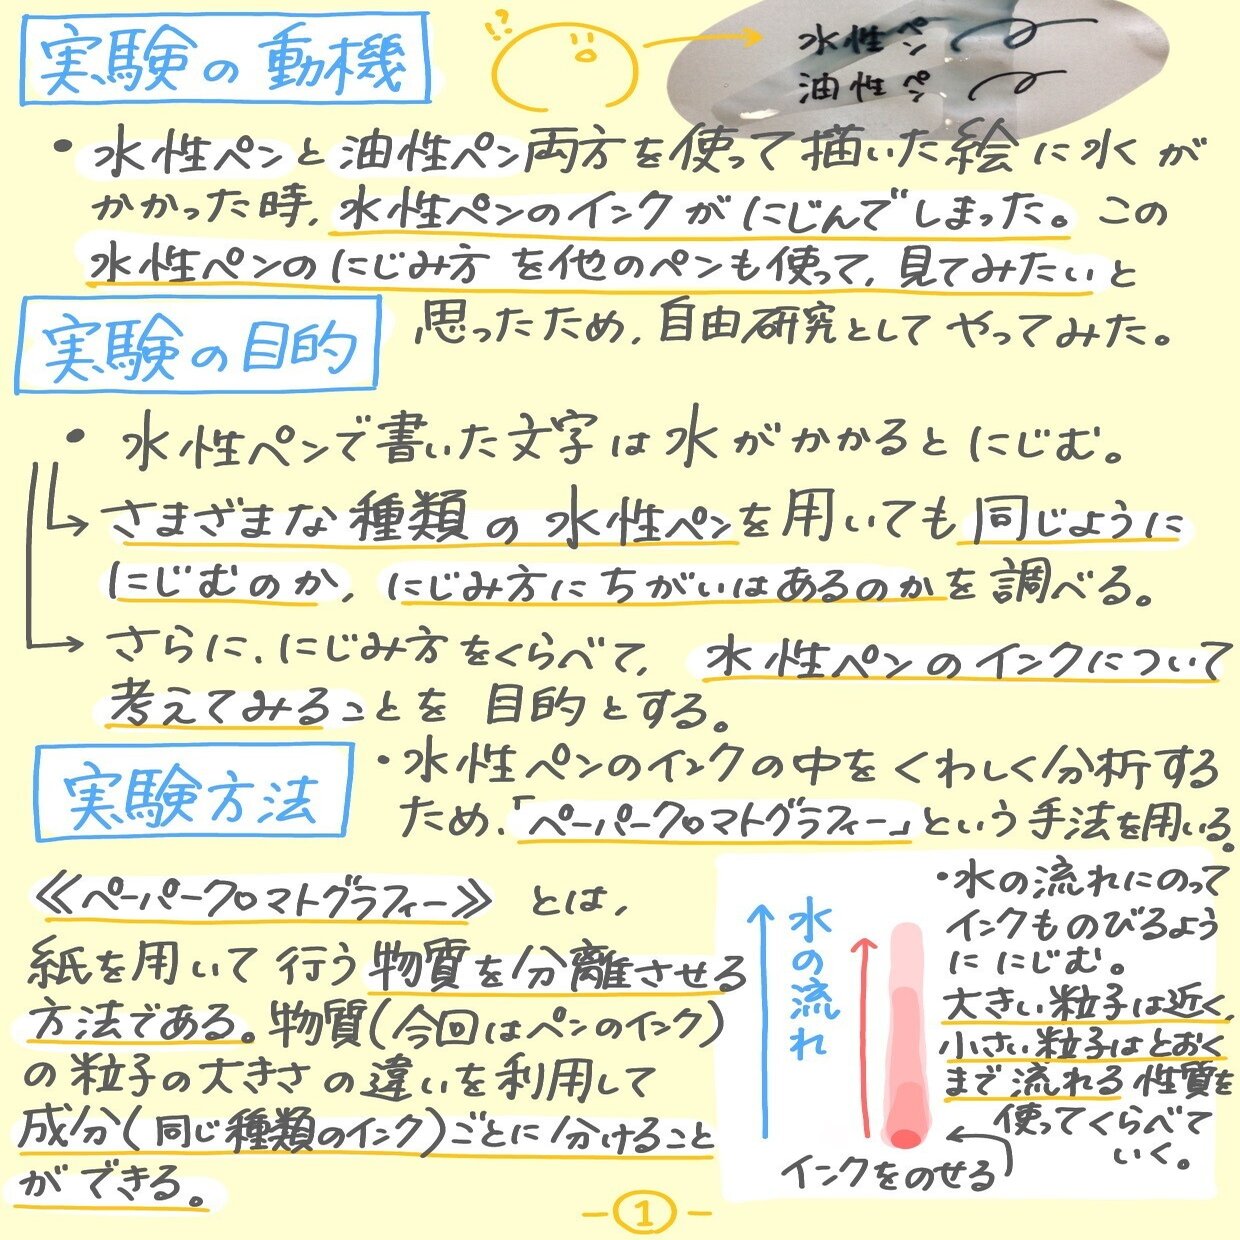 実験の動機
!?
水性ペン
油性ペン
・水性ペンと油性ペン両方を使って描いた絵に水が
かかった時、水性ペンのインクがにじんでしまった。この
水性ペンのにじみ方を他のペンも使って、見てみたいと
思ったため、自由研究としてやってみた。
実験の目的
・水性ペンで書いた文字は水がかかるとにじむ。
→さまざまな種類の水性ペンを用いても同じように
にじむのか、にじみ方にちがいはあるのかを調べる。
→さらに、にじみ方をくらべて、水性ペンのインクについて
考えてみることを目的とする。
実験方法
・水性ペンのインクの中をくわしく分析する
ため、「ペーパークロマトグラフィー」という手法を用いる。
≪ペーパークロマトグラフィー≫とは、
紙を用いて行う物質を分離させる
方法である。物質(今回はペンのインク)
の粒子の大きさの違いを利用して
成分(同じ種類のインク)ごとに分けること
ができる。
水の流れ
インクをのせる
・水の流れにのって
インクものびるよう
ににじむ。
大きい粒子は近く、
小さい粒子はとおく
まで流れる性質を
使ってくらべて
いく。
-1-